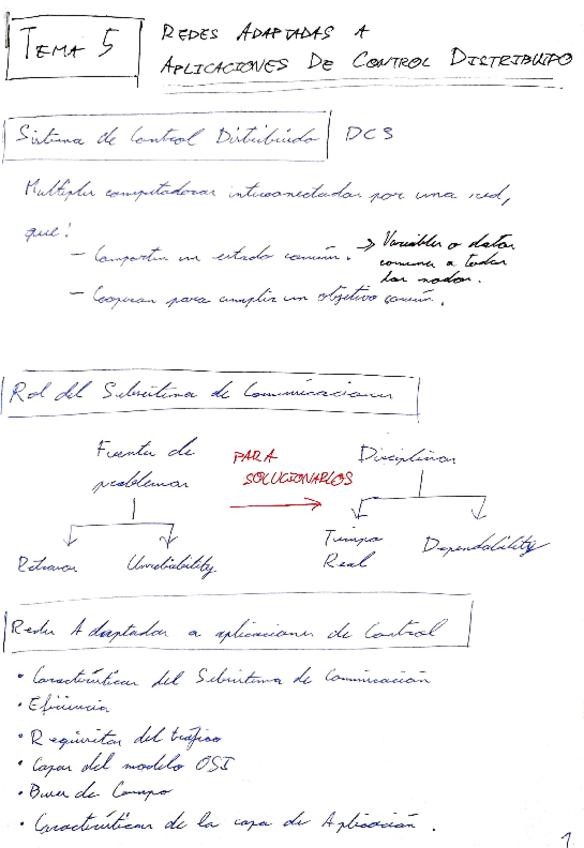 TEMA 5
REDES ADAPTADAS A
APLICACIONES DE CONTROL DISTRIBUIDO
Sistema de Control Distribuido DCS
Multiples computadoras interconectadas por una red,
que:
- Comparten un estado común. → Variables o datos
comunes a todos
los nodos.
- Cooperan para cumplir un objetivo común.
Rol del Subsistema de Comunicaciones
Fuentes de
problemas
PARA
SOLUCIONARLOS
Disciplinas
Retrasos
Unreliability
Tiempo
Real
Dependability
Redes Adaptadas a aplicaciones de Control
• Características del Subsistema de Comunicación
• Eficiencia
• Requisitos del tráfico
• Capas del modelo OSI
• Buses de Campo
• Características de la capa de Aplicación.
1